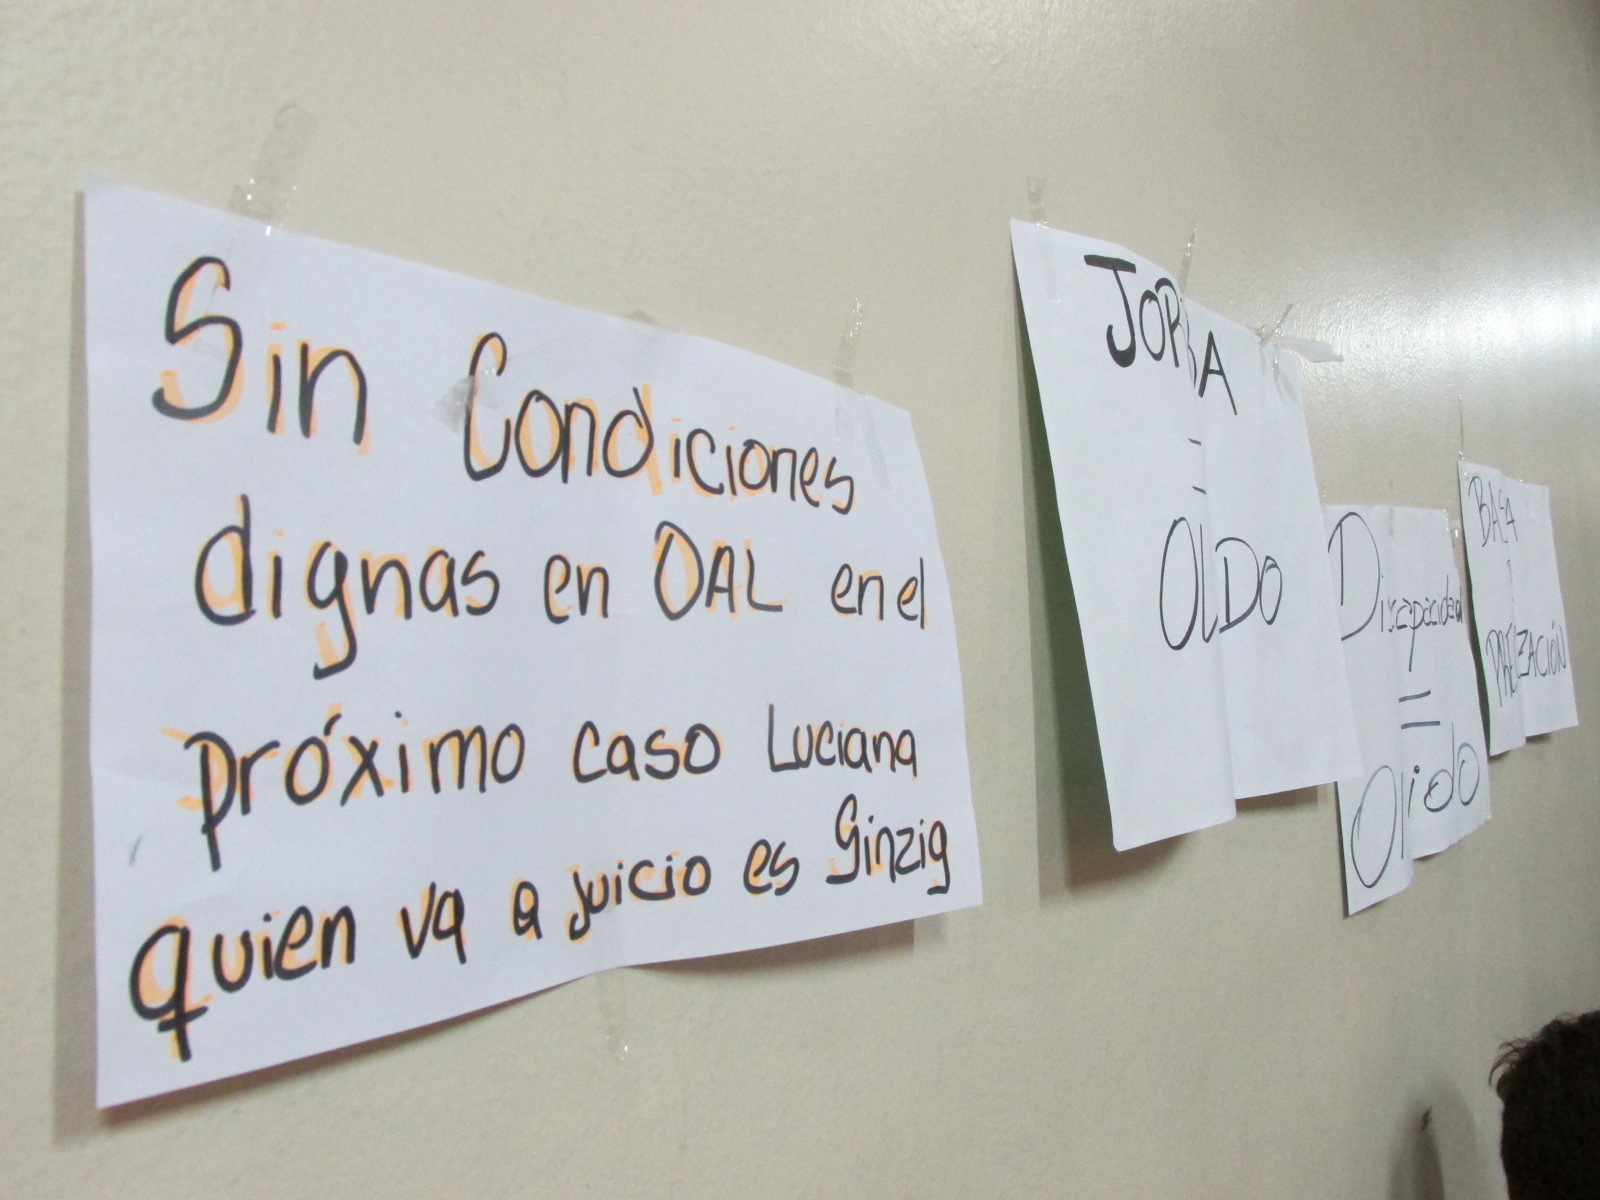 Sin Condiciones
dignas en OAL en el
próximo caso Luciana
quien va a juicio es Ginzig
=
Discapacidad
=
BASA